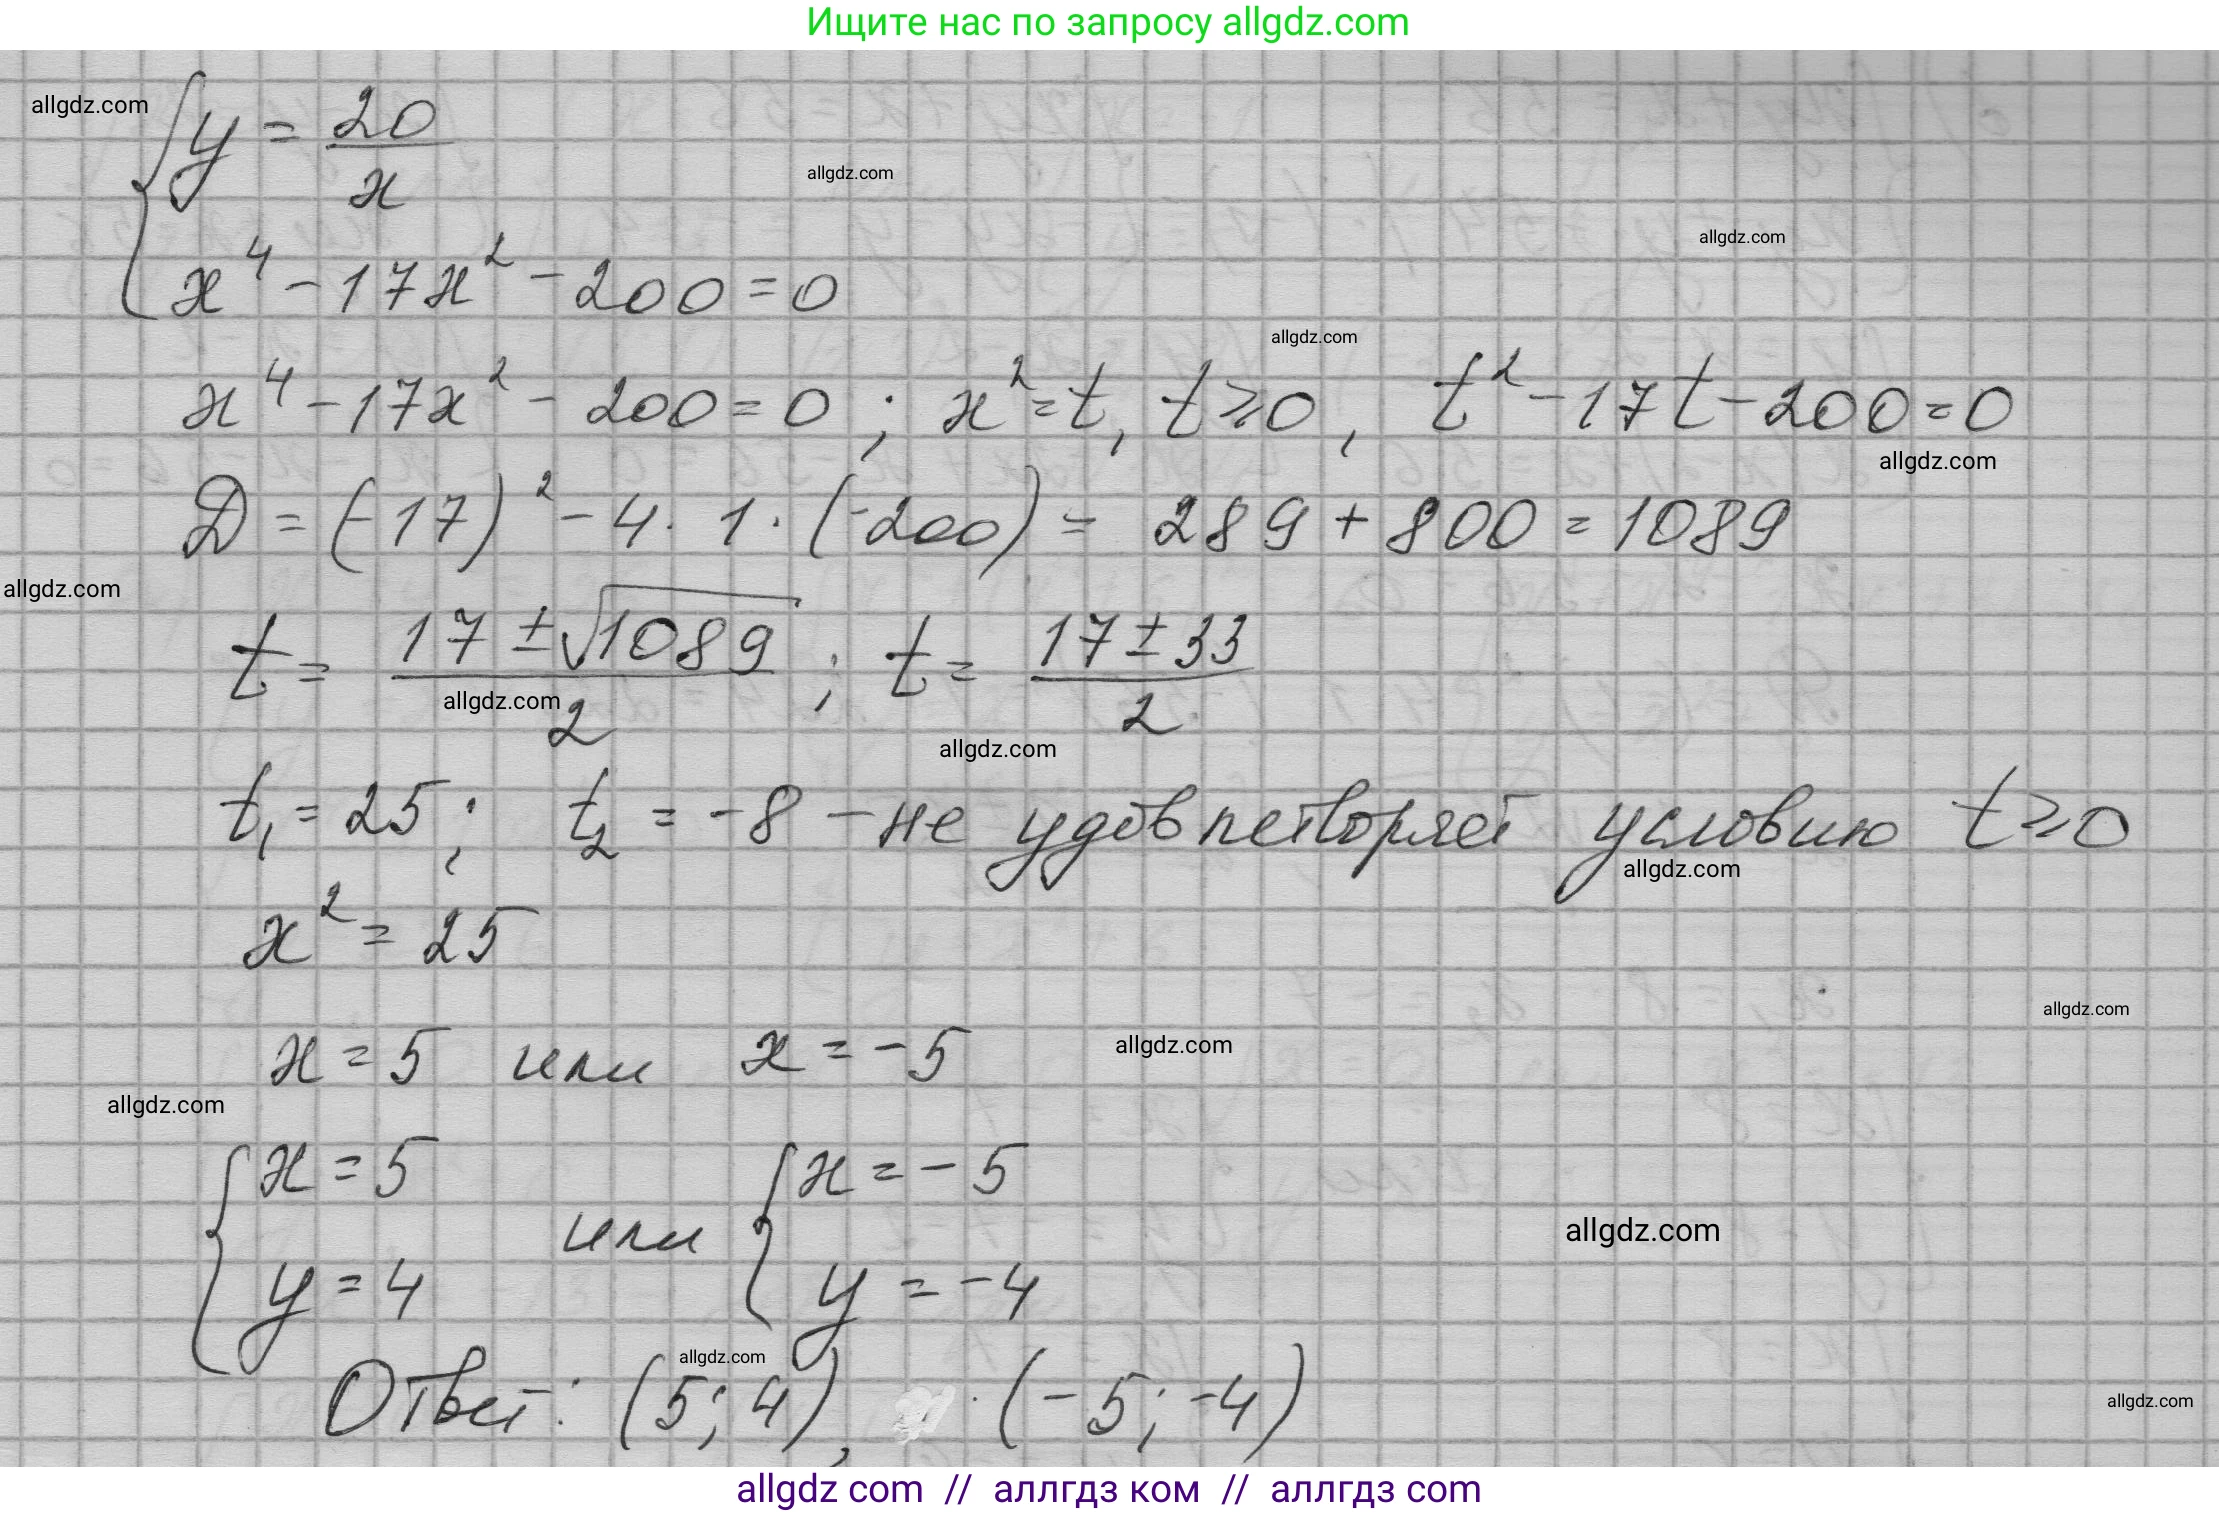 Ищите нас по запросу allgdz.com
allgdz.com
y = 20/x
allgdz.com
allgdz.com
x⁴ - 17x² - 200 = 0
allgdz.com
x⁴ - 17x² - 200 = 0 ; x² = t, t ⩾ 0, t² - 17t - 200 = 0
allgdz.com
D = (-17)² - 4 · 1 · (-200) = 289 + 800 = 1089
allgdz.com
t = (17 ± √1089)/2 ; t = (17 ± 33)/2
allgdz.com
allgdz.com
t₁ = 25 ; t₂ = -8 - не удовлетворяет условию t ⩾ 0
allgdz.com
x² = 25
allgdz.com
x = 5 или x = -5
allgdz.com
allgdz.com
{ x = 5 или { x = -5
y = 4 y = -4
allgdz.com
allgdz.com
Ответ: (5; 4), (-5; -4)
allgdz.com
allgdz com // аллгдз ком // аллгдз com